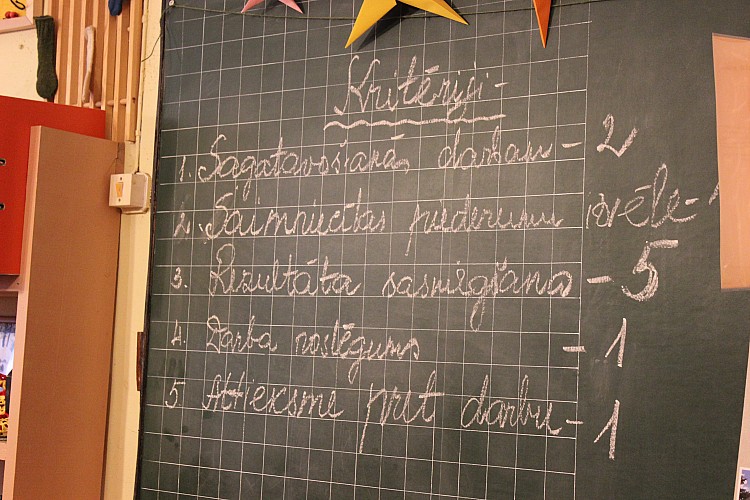 Kritēriji -
1. Sagatavošanās darbam - 2
2. Saimniecības piederumu izvēle - 1
3. Rezultāta sasniegšana - 5
4. Darba noslēgums - 1
5. Attieksme pret darbu - 1